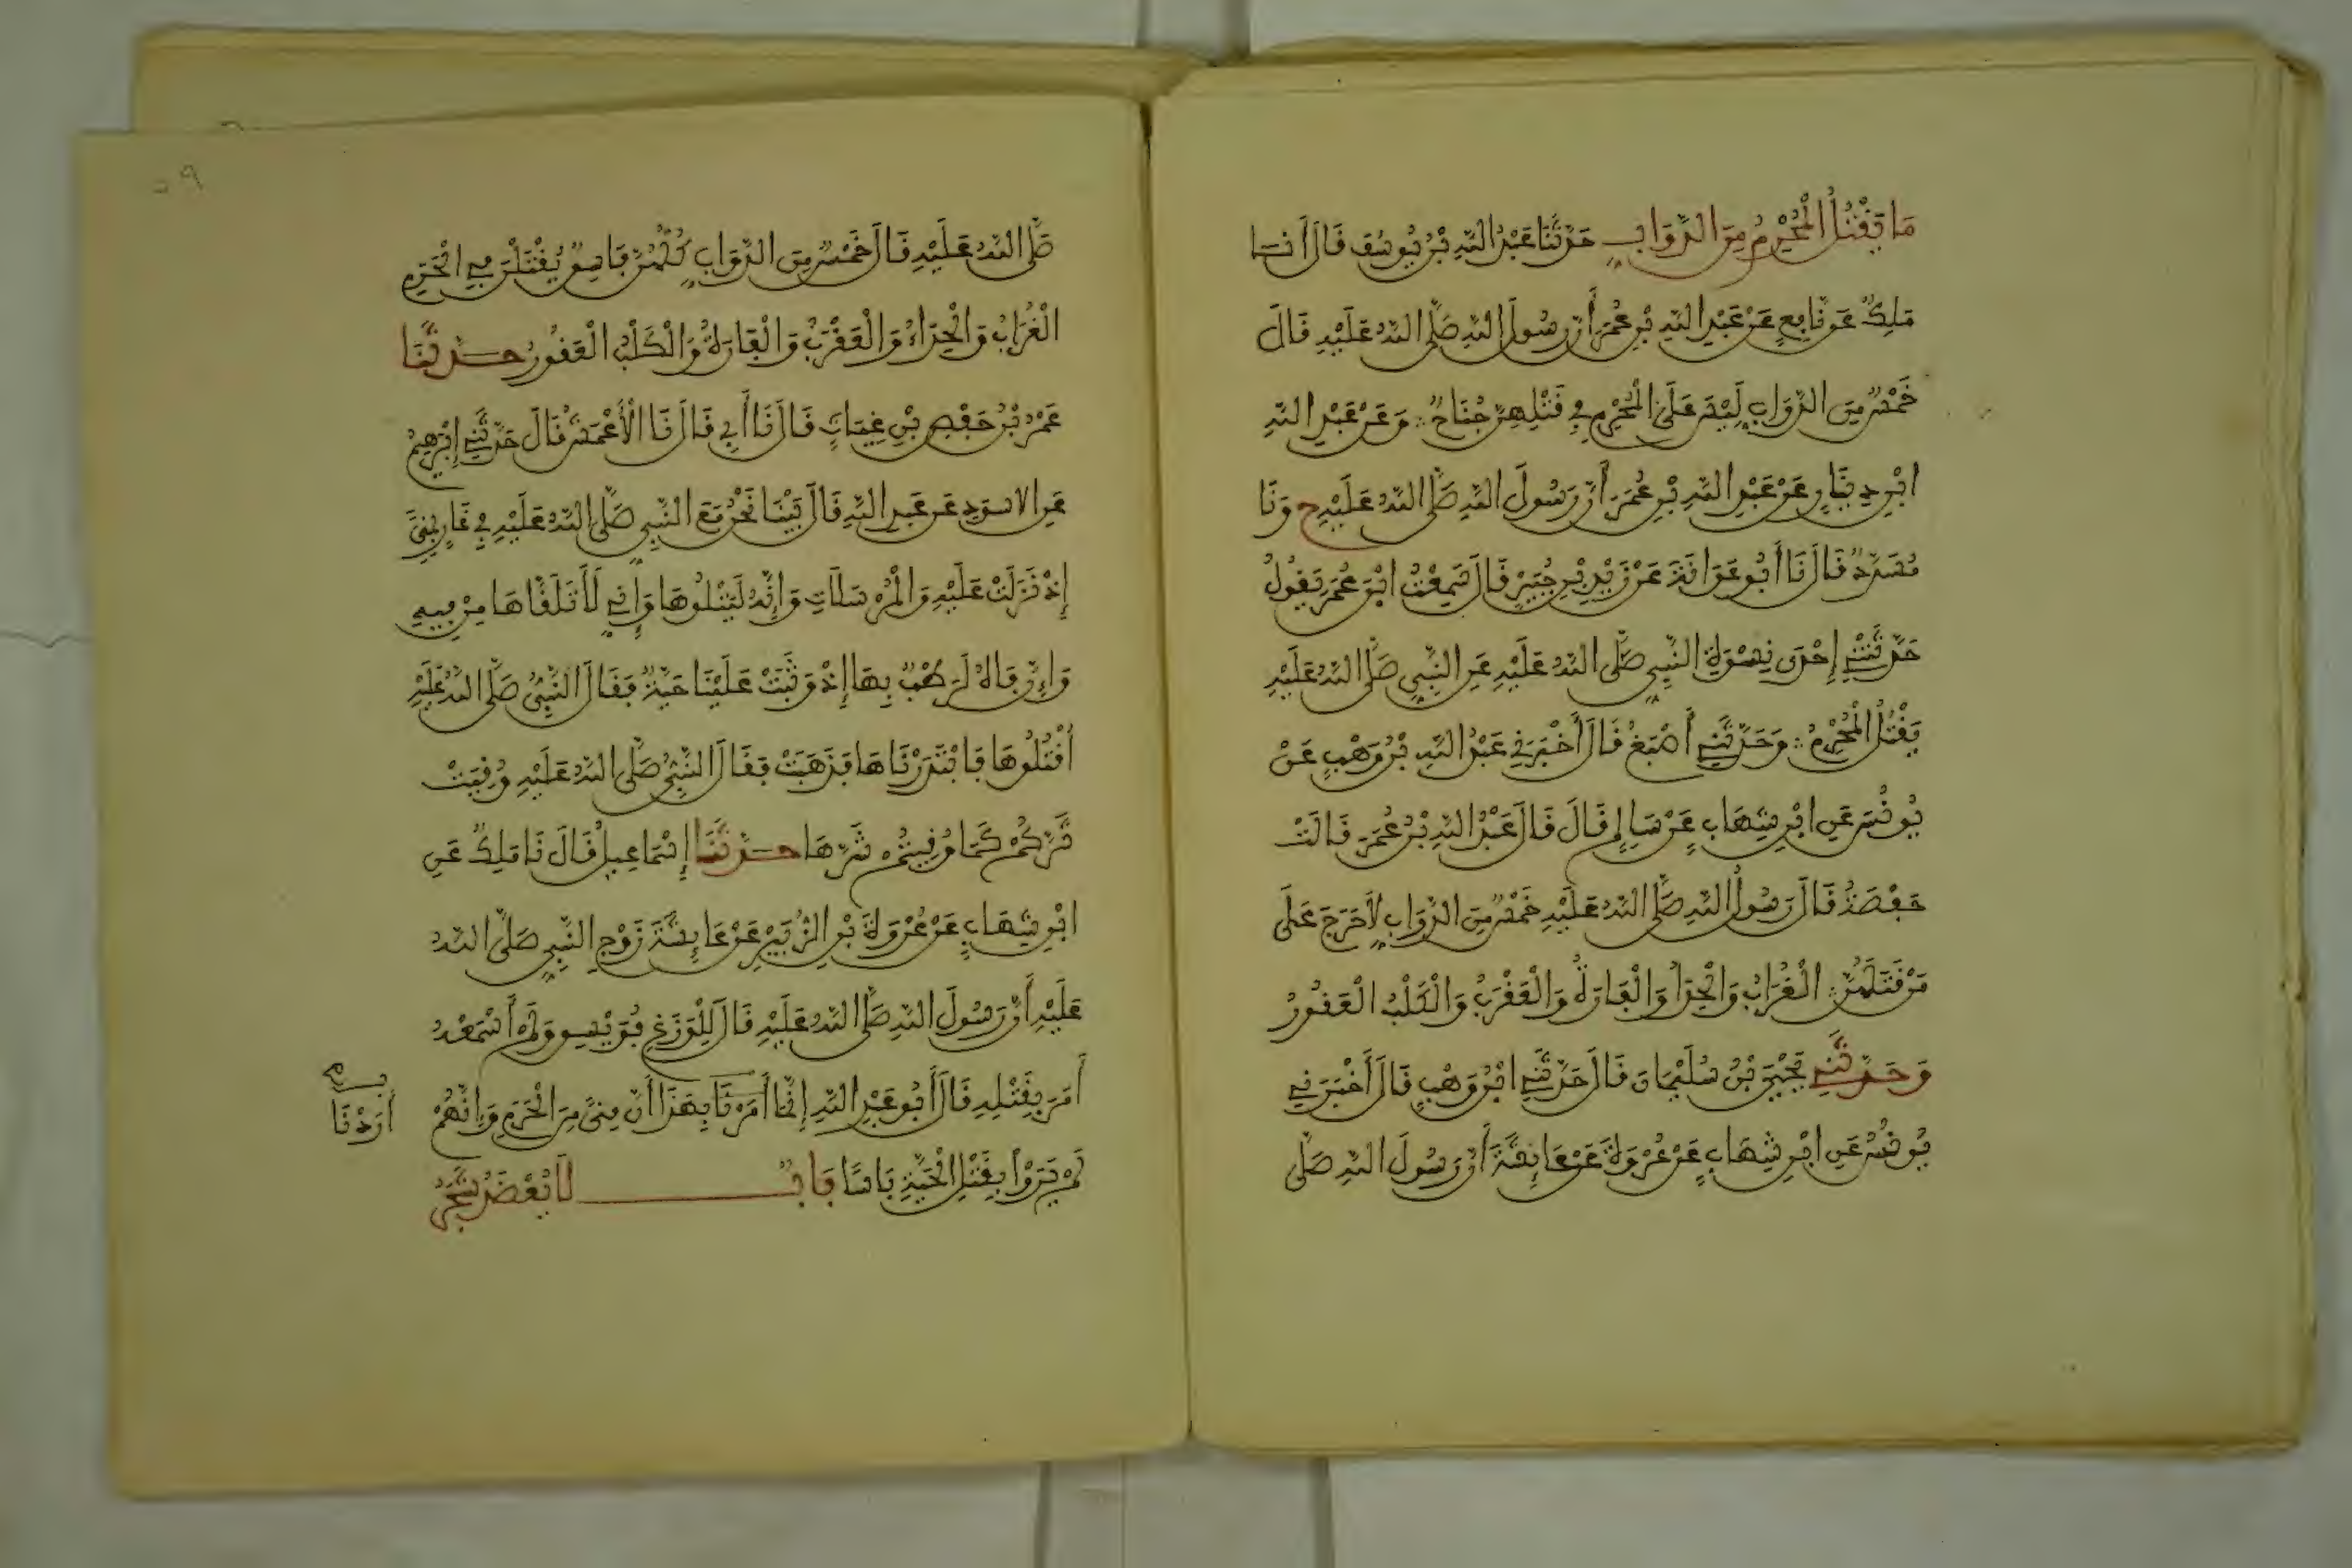 مَا يَقْتُلُ الْمُحْرِمُ مِنَ الدَّوَابِّ حَدَّثَنَا عَبْدُ اللهِ بْنُ يُوسُفَ قَالَ أَنَا
مَلِكٌ عَن نَّافِعٍ عَنْ عَبْدِ اللهِ بْنِ عُمَرَ أَنَّ رَسُولَ اللهِ صَلَّى اللهُ عَلَيْهِ قَالَ
خَمْسٌ مِنَ الدَّوَابِّ لَيْسَ عَلَى الْمُحْرِمِ فِي قَتْلِهِنَّ جُنَاحٌ وَعَنْ عَبْدِ اللهِ
ابْنِ دِينَارٍ عَنْ عَبْدِ اللهِ بْنِ عُمَرَ أَنَّ رَسُولَ اللهِ صَلَّى اللهُ عَلَيْهِ ح وَنَا
مُسَدَّدٌ قَالَ نَا أَبُو عَوَانَةَ عَنْ زَيْدِ بْنِ جُبَيْرٍ قَالَ سَمِعْتُ ابْنَ عُمَرَ يَقُولُ
حَدَّثَتْنِي إِحْدَى نِسْوَةِ النَّبِيِّ صَلَّى اللهُ عَلَيْهِ عَنِ النَّبِيِّ صَلَّى اللهُ عَلَيْهِ
يَقْتُلُ الْمُحْرِمُ وَحَدَّثَنِي أَصْبَغُ قَالَ أَخْبَرَنِي عَبْدُ اللهِ بْنُ وَهْبٍ عَنْ
يُونُسَ عَنِ ابْنِ شِهَابٍ عَنْ سَالِمٍ قَالَ قَالَ عَبْدُ اللهِ بْنُ عُمَرَ قَالَتْ
حَفْصَةُ قَالَ رَسُولُ اللهِ صَلَّى اللهُ عَلَيْهِ خَمْسٌ مِنَ الدَّوَابِّ لَا حَرَجَ عَلَى
مَنْ قَتَلَهُنَّ الْغُرَابُ وَالْحِدَأُ وَالْفَارَةُ وَالْعَقْرَبُ وَالْكَلْبُ الْعَقُورُ
وَحَدَّثَنِي يَحْيَى بْنُ سُلَيْمَانَ قَالَ حَدَّثَنِي ابْنُ وَهْبٍ قَالَ أَخْبَرَنِي
يُونُسُ عَنِ ابْنِ شِهَابٍ عَنْ عُرْوَةَ عَنْ عَائِشَةَ أَنَّ رَسُولَ اللهِ صَلَّى
صَلَّى اللهُ عَلَيْهِ قَالَ خَمْسٌ مِنَ الدَّوَابِّ كُلُّهُنَّ فَاسِقٌ يُقْتَلْنَ فِي الْحَرَمِ
الْغُرَابُ وَالْحِدَاءُ وَالْعَقْرَبُ وَالْفَارَةُ وَالْكَلْبُ الْعَقُورُ حَدَّثَنَا
عُمَرُ بْنُ حَفْصِ بْنِ غِيَاثٍ قَالَ نَا أَبِي قَالَ نَا الْأَعْمَشُ قَالَ حَدَّثَنِي إِبْرَهِيمُ
عَنِ الاسْوَدِ عَنْ عَبْدِ اللهِ قَالَ بَيْنَا نَحْنُ مَعَ النَّبِيِّ صَلَّى اللهُ عَلَيْهِ فِي غَارٍ بِمِنًى
إِذْ نَزَلَتْ عَلَيْهِ وَالْمُرْسَلَاتِ وَإِنَّهُ لَيَتْلُوهَا وَإِنِّي لَأَتَلَقَّاهَا مِنْ فِيهِ
وَإِنَّ فَاهُ لَرَطْبٌ بِهَا إِذْ وَثَبَتْ عَلَيْنَا حَيَّةٌ فَقَالَ النَّبِيُّ صَلَّى اللهُ عَلَيْهِ
اُقْتُلُوهَا فَابْتَدَرْنَاهَا فَذَهَبَتْ فَقَالَ النَّبِيُّ صَلَّى اللهُ عَلَيْهِ وُقِيَتْ
شَرَّكُمْ كَمَا وُقِيتُمْ شَرَّهَا حَدَّثَنَا إِسْمَاعِيلُ قَالَ نَا مَلِكٌ عَنِ
ابْنِ شِهَابٍ عَنْ عُرْوَةَ بْنِ الزُّبَيْرِ عَنْ عَائِشَةَ زَوْجِ النَّبِيِّ صَلَّى اللهُ
عَلَيْهِ أَنَّ رَسُولَ اللهِ صَلَّى اللهُ عَلَيْهِ قَالَ لِلْوَزَغِ فُوَيْسِقٌ وَلَمْ أَسْمَعْهُ
أَمَرَ بِقَتْلِهِ قَالَ أَبُو عَبْدِ اللهِ إِنَّمَا أَمَرْنَا بِهَذَا أَنَّ مِنًى مِنَ الْحَرَمِ وَإِنَّهُمْ
أَرَدْنَا
لَمْ يَرَوْا بِقَتْلِ الْحَيَّةِ بَاسًا بَابٌ لَا يُعْضَدُ شَجَرُ